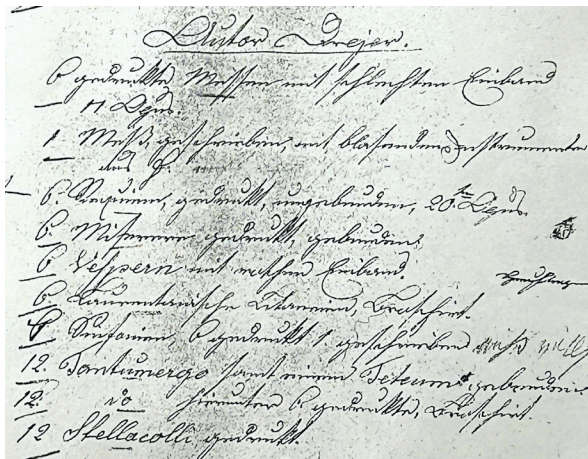 Autor Dreyer.
6 gedruckte Messen mit schlechten Einband
11 Opus.
1 Meß, geschrieben, mit blasenden Instrumenten
aus
6. Requiem, gedruckt, ungebunden, 20ten Opus.
6 Miserere gedruckt, gebunden.
6 Vespern mit rothen Einband.
6 Lauretanische Litaneien, Broschirt.
Sinfonien, 6 gedruckt 1. geschrieben
12. Tantumergo samt einem Tedeum gebunden.
12. do hierunter 6 gedruckte, Broschirt.
12 Stellacoeli gedruckt.